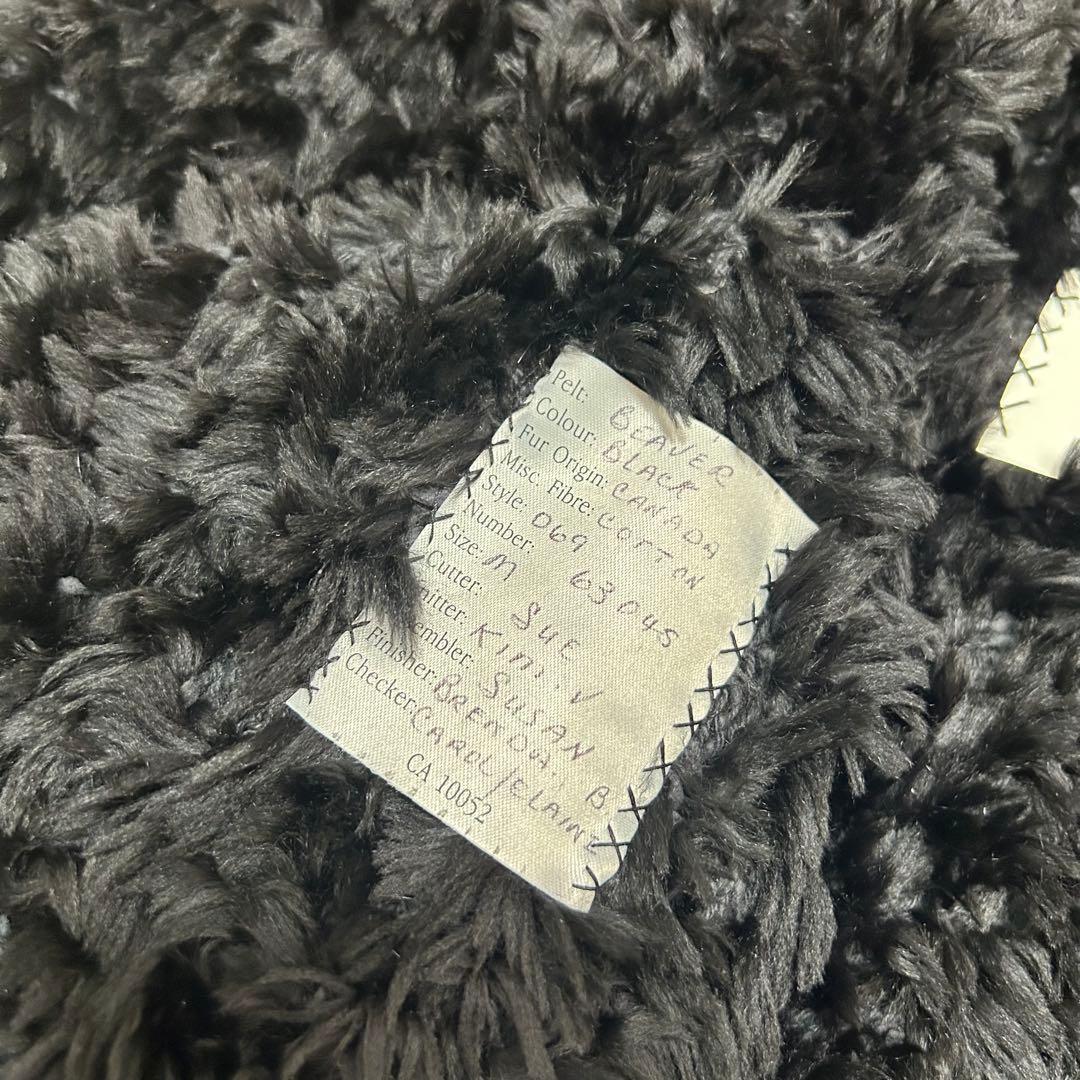 Pelt: BEAVER
Colour: BLACK
Fur Origin: CANADA
Misc. Fibre: COTTON
Style: 069
Number: 63045
Size: M
Cutter: SUE
nitter: KIM. V
embler: SUSAN
Finisher: BRENDA. B
Checker: CAROL/ELAINE
CA 10052